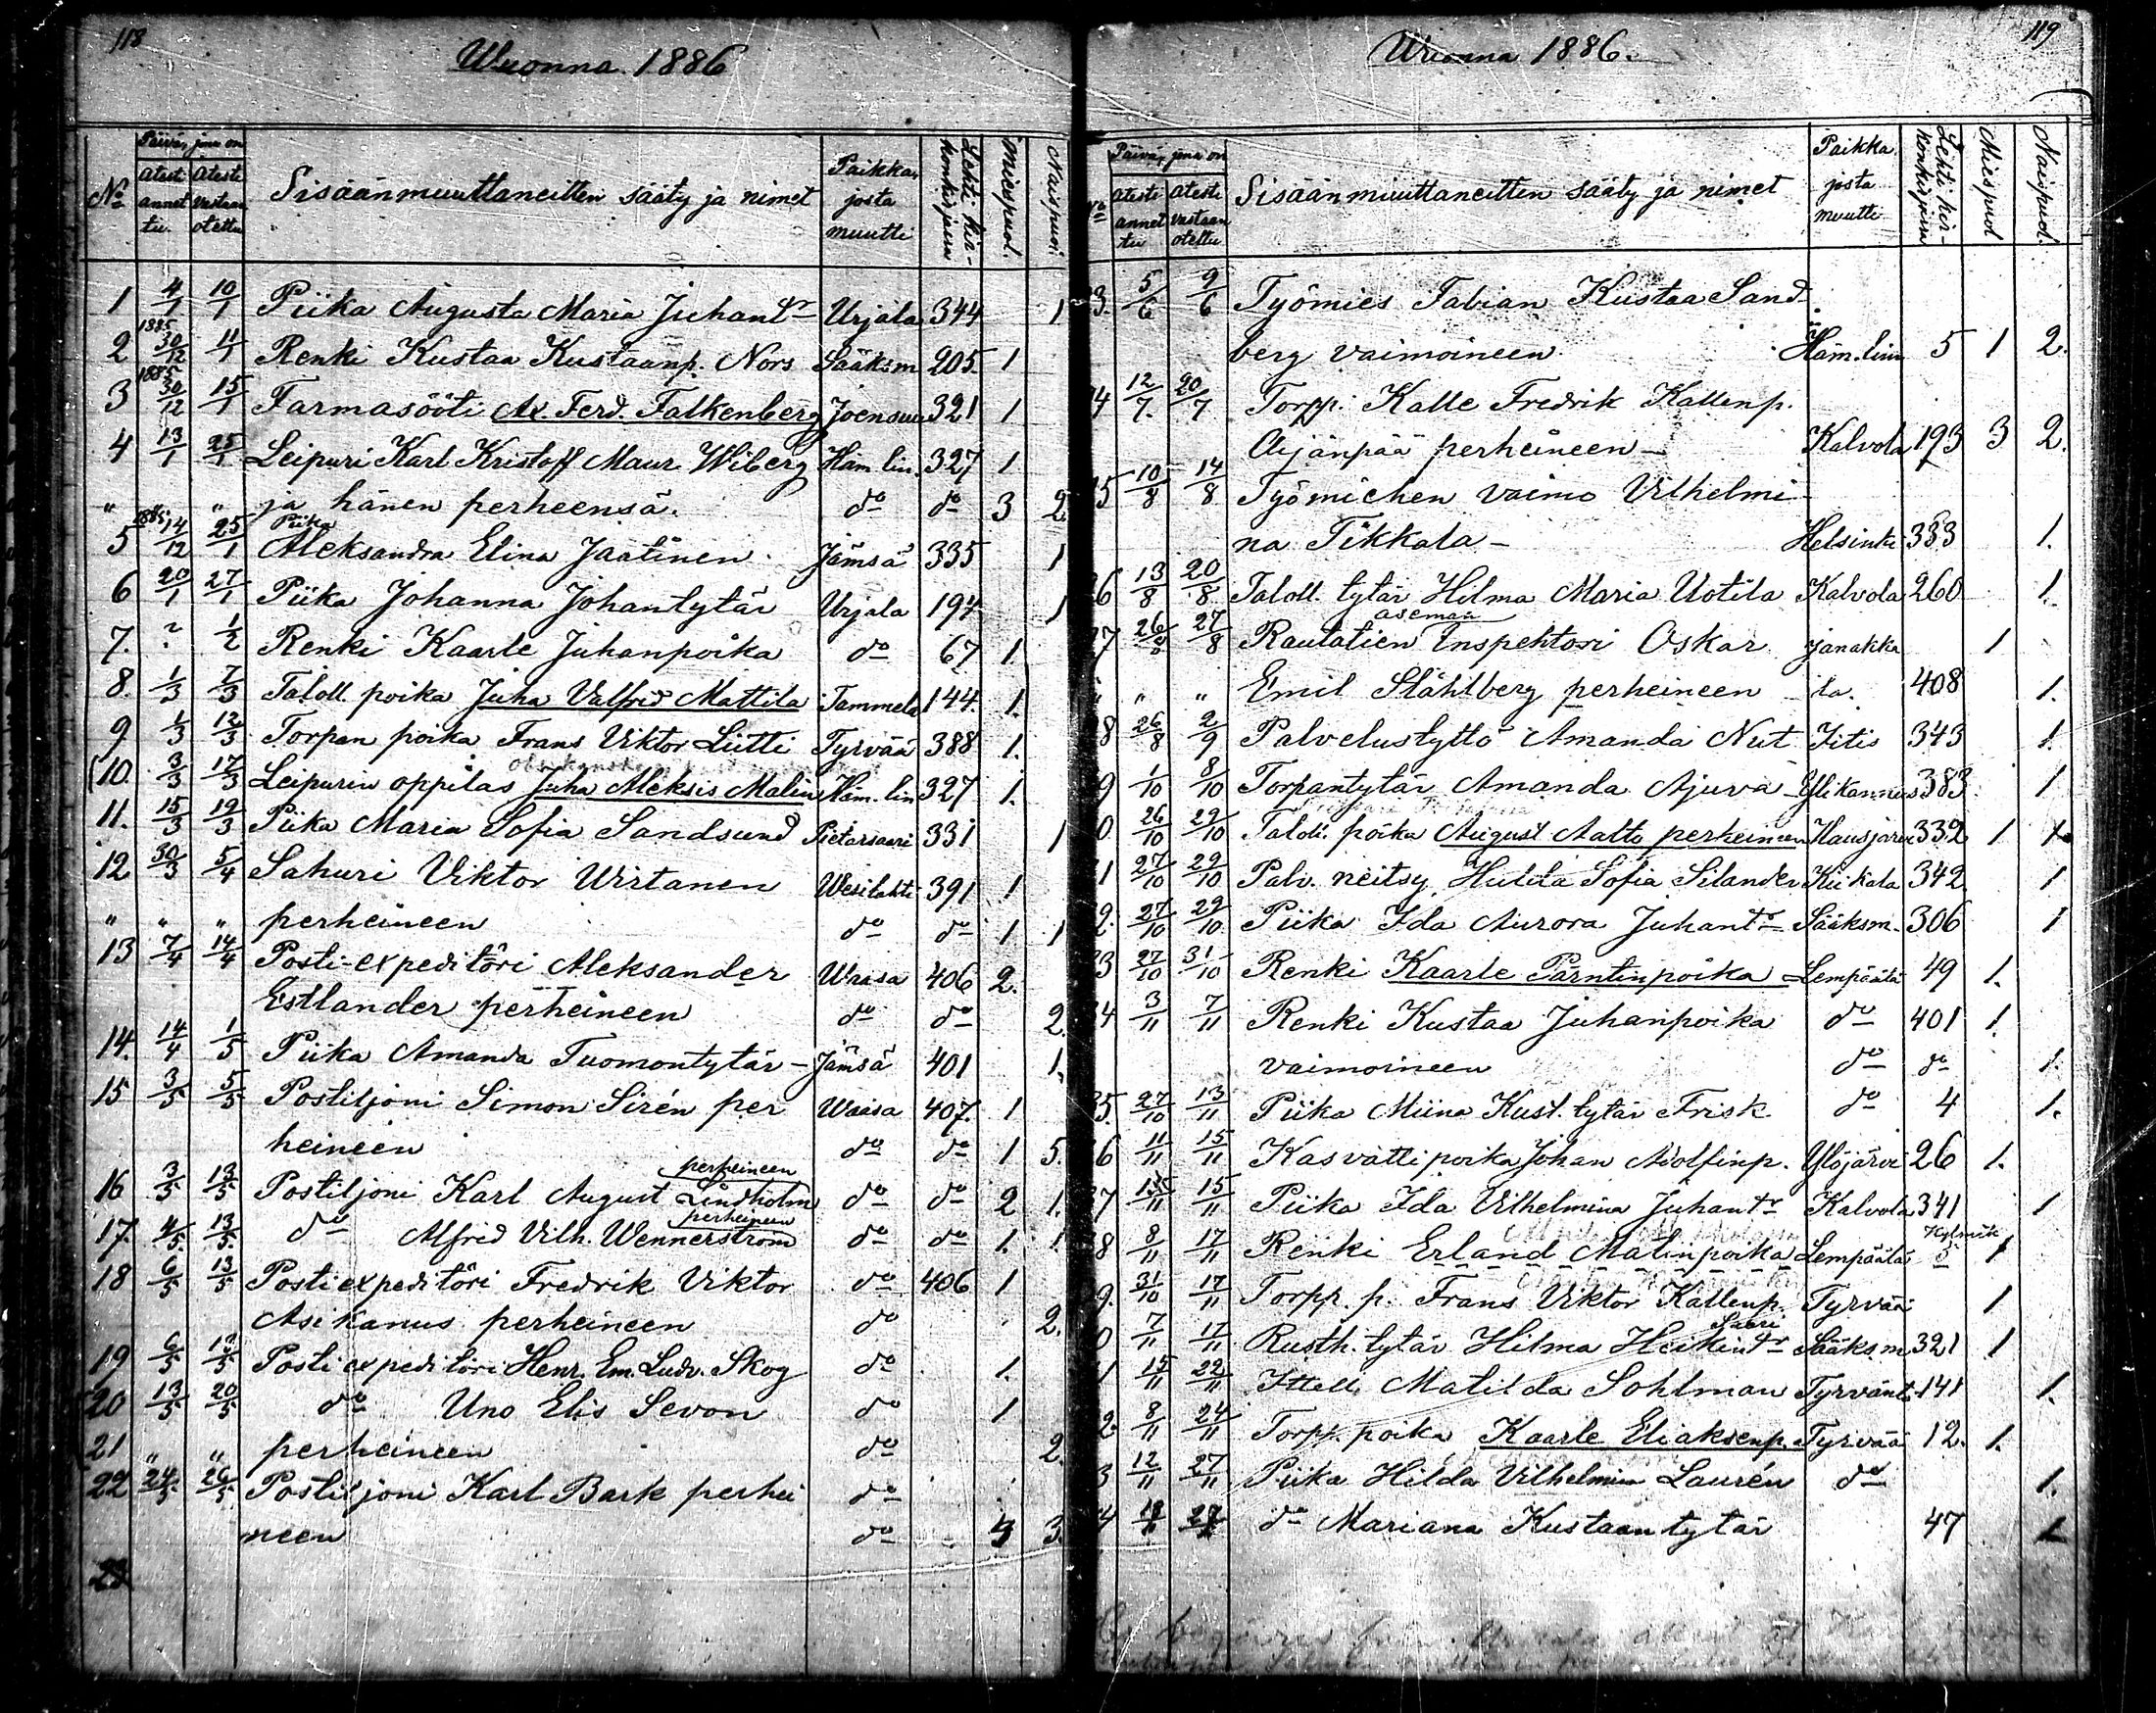 118
Wuonna 1886
Päivä, jona on
No
Atesti annettu.
Atesti vastaan otettu
Sisäänmuuttaneitten sääty ja nimet
Paikka, josta muutti
Lehti kirkonkirjassa
Miespuol.
Naispuol.
1 4/1 10/1 Piika Augusta Maria Juhantr Urjala 344 1
2 1885 30/12 11/1 Renki Kustaa Kustaanp. Nors Sääksm 205 1
3 1885 30/12 15/1 Farmasööti Ax. Ferd. Falkenberg Joensuu 321 1
4 13/1 25/1 Leipuri Karl Kristoff Maur. Wiberg Häm lin. 327 1
" " ja hänen perheensä. do do 3 2.
5 1885 14/12 25/1 Piika Aleksandra Elina Jaatinen Jämsä 335 1
6 20/1 27/1 Piika Johanna Johantytär Urjala 197 1
7. ? 1/2 Renki Kaarle Juhanpoika do 67 1.
8. 1/3 7/3 Taloll. poika Juha Valfrid Mattila Tammela 144. 1.
9 1/3 12/3 Torpan poika Frans Viktor Liitti Tyrvää 388 1.
10. 3/3 17/3 Leipurin oppilas Juha Aleksis Malin Häm. lin 327 1.
11. 15/3 19/3 Piika Maria Sofia Sandsund Pietarsaari 331 1
12 30/3 5/4 Sahuri Viktor Wirtanen Wesilahti 391 1
" " " perheineen do do 1 1
13 7/4 14/4 Posti-expeditöri Aleksander Waasa 406 2.
Estlander perheineen do do 2.
14. 14/4 1/5 Piika Amanda Tuomontytär - Jämsä 401 1.
15 3/5 5/5 Postiljoni Simon Sirén per Waasa 407. 1
heineen do do 1 5.
16 3/5 13/5 Postiljoni Karl August Lindholm perheineen do do 2 1.
17. 4/5. 13/5. do Alfrid Vilh. Wennerström perheineen do do 1. 1.
18 6/5 13/5 Postiexpeditöri Fredrik Viktor do 406 1
Asikanus perheineen do 2.
19 6/5 13/5 Posti expeditöri Henr. Em. Ludv. Skog do 1.
20 13/5 20/5 do Uno Elis Sevon do 1
21 " " perheineen do 2.
22 24/5 26/5 Postiljoni Karl Bark perhei do
neen do 4 3.
23
119
Wuonna 1886.
Päivä, jona on
No
Atesti annettu
Atesti vastaan otettu
Sisäänmuuttaneitten sääty ja nimet
Paikka, josta muutti
Lehti kirkonkirjassa
Miespuol
Naispuol.
3. 5/6 9/6 Työmies Fabian Kustaa Sand-
berg vaimoineen Häm. linn 5 1 2.
4 12/7. 20/7 Torpp. Kalle Fredrik Kallenp.
Äijänpää perheineen - Kalvola 193 3 2.
5 10/8 14/8 Työmiehen vaimo Vilhelmi-
na Tikkala - Helsinki 383 1.
6 13/8 20/8 Taloll. tytär Hilma Maria Uotila Kalvola 260 1.
7 26/8 27/8 Rautatien aseman Inspehtori Oskar Janakka 1
" " " Emil Ståhlberg perheineen la. 408 1.
8 26/8 2/9 Palvelustyttö Amanda Nut Iitis 343 1.
9 1/10 8/10 Torpantytär Amanda Ajuva Ylikannus 383 1
0 26/10 29/10 Taloll. poika August Aalto perheineen Hausjärvi 332 1 1
1 27/10 29/10 Palv. neitsy Hulda Sofia Silander Kiikala 342. 1
2. 27/10 29/10 Piika Ida Aurora Juhantr Sääksm. 306 1
3 27/10 31/10 Renki Kaarle Pärntinpoika Lempäälä 49 1.
4 3/11 7/11 Renki Kustaa Juhanpoika do 401 1.
vaimoineen do do 1.
5. 27/10 13/11 Piika Miina Kust. tytär Frisk do 4 1.
6 11/11 15/11 Kasvattipoika Johan Adolfinp. Ylöjärvi 26 1.
7 15/11 15/11 Piika Ida Vilhelmina Juhantr Kalvola 341 1
8 8/11 17/11 Renki Erland Matinpoika Lempäälä 1
9. 31/10 17/11 Torpp. p. Frans Viktor Kallenp. Tyrvää 1
0 7/11 17/11 Rusth. tytär Hilma Heikintr Saari Sääksm 321 1
1 15/11 22/11 Ittell. Matilda Sohlman Tyrvänt. 141 1.
2. 8/11 24/11 Torpp. poika Kaarle Eliaksenp. Tyrvää 12. 1.
3 12/11 27/11 Piika Hilda Vilhelmina Laurén do 1.
4 do Mariana Kustaantytär 47 1